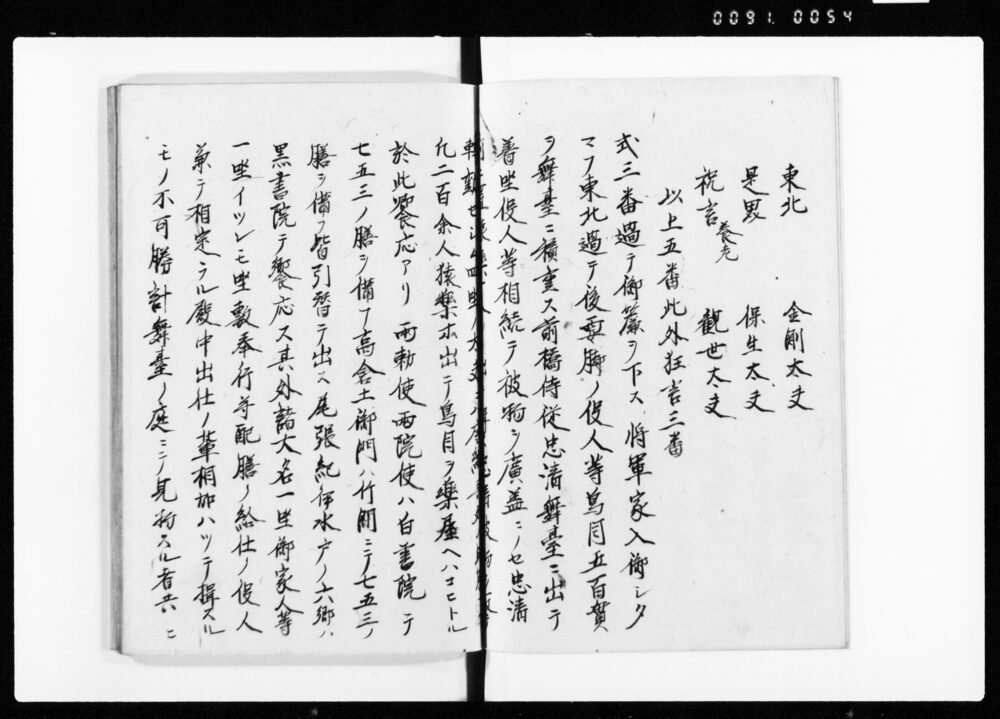 0091.0054
東北 金剛太夫
是界 保生太夫
祝言 養老 觀世太夫
以上五番此外狂言三番
式三番過テ御簾ヲ下ス將軍家入御シタ
マフ東北過テ後要脚ノ役人等鳥目五百貫
ヲ舞臺ニ積重ス前橋侍従忠清舞臺ニ出テ
着坐役人等相続テ被物ヲ廣蓋ニノセ忠清
九二百余人猿樂ホ出テ鳥目ヲ樂屋ヘハコヒトル
於此饗応アリ両勅使両院使ハ白書院ニテ
七五三ノ膳ヲ備フ高倉土御門ハ竹間ニテ七五三ノ
膳ヲ備フ皆引替テ出ス尾張紀伊水戸ノ六郷ハ
黒書院テ饗応ス其外諸大名一坐御家人等
一坐イツレモ坐敷奉行等配膳ノ給仕ノ役人
兼テ相定ラル殿中出仕ノ輩相加ハツテ揖スル
モノ不可勝計舞臺ノ庭ニテ見物スル者共ニ